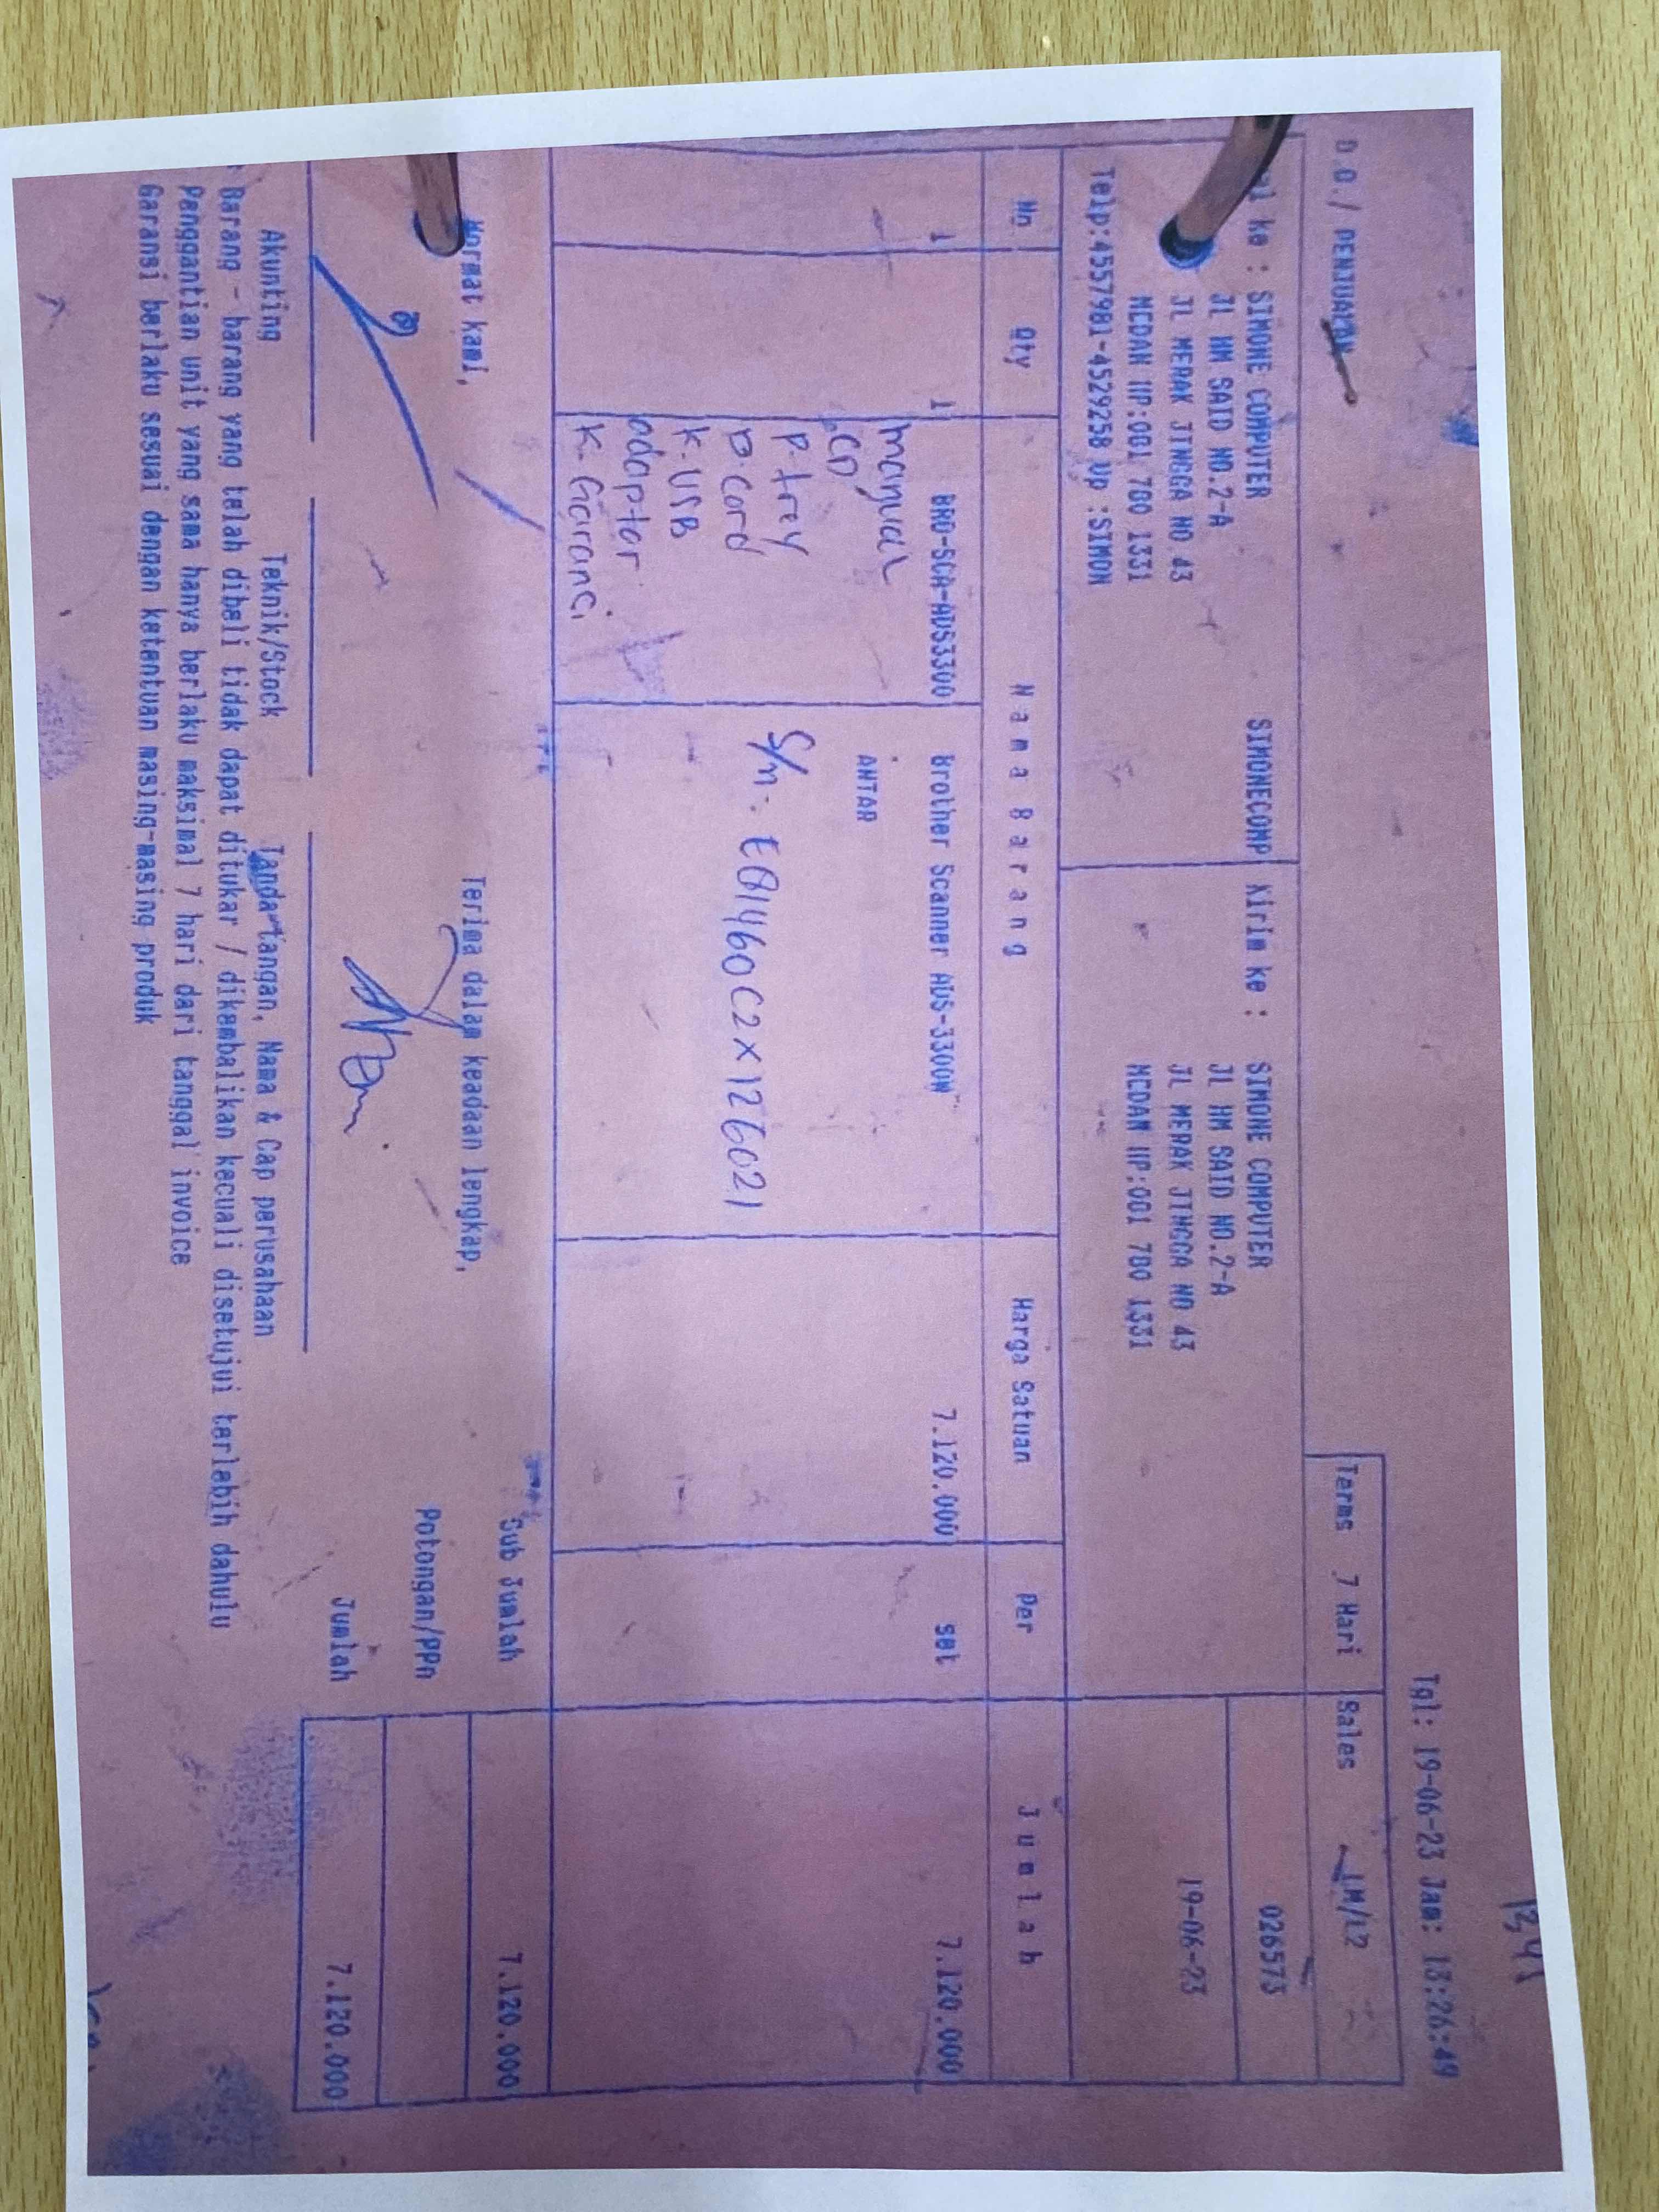 Tgl: 19-06-23 Jam: 13:26:49
D.O./ PENJUALAN
Terms 7 Hari Sales LM/L2
ke : SIMONE COMPUTER SIMONECOMP Kirim ke : SIMONE COMPUTER 026573
JL HM SAID NO.2-A JL HM SAID NO.2-A
JL MERAK JINGGA NO 43 JL MERAK JINGGA NO 43 19-06-23
MEDAN HP:081 780 1331 MEDAN HP:081 780 1331
Telp:4557981-4529258 Up :SIMON
No Qty Nama Barang Harga Satuan Per Jumlah
1 1 BRO-SCA-ADS3300 Brother Scanner ADS-3300W 7.120.000 set 7.120.000
manual
CD ANTAR
P. trey
P. Cord S/n: E81460C2X126021
K. USB
adaptor
K. Garanci
Sub Jumlah 7.120.000
Hormat kami, Terima dalam keadaan lengkap,
Potongan/PPn
Jumlah 7.120.000
Akunting Teknik/Stock Tanda tangan, Nama & Cap perusahaan
* Barang - barang yang telah dibeli tidak dapat ditukar / dikembalikan kecuali disetujui terlebih dahulu
Penggantian unit yang sama hanya berlaku maksimal 7 hari dari tanggal invoice
Garansi berlaku sesuai dengan ketentuan masing-masing produk